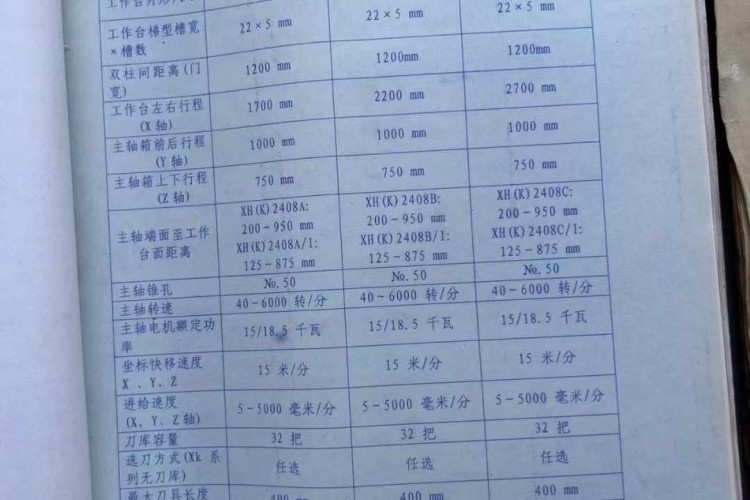 工作台外形尺
22×5 mm 22×5 mm 22×5 mm
工作台梯型槽宽
×槽数
双柱间距离(门
宽) 1200 mm 1200mm 1200mm
工作台左右行程
(X 轴) 1700 mm 2200 mm 2700 mm
主轴箱前后行程
(Y 轴) 1000 mm 1000 mm 1000 mm
主轴箱上下行程
(Z 轴) 750 mm 750 mm 750 mm
主轴端面至工作
台面距离
XH(K)2408A: XH(K)2408B: XH(K)2408C:
200~950 mm 200~950 mm 200~950 mm
XH(K)2408A/1: XH(K)2408B/1: XH(K)2408C/1:
125~875 mm 125~875 mm 125~875 mm
主轴锥孔 №.50 №.50 №.50
主轴转速 40~6000 转/分 40~6000 转/分 40~6000 转/分
主轴电机额定功
率 15/18.5 千瓦 15/18.5 千瓦 15/18.5 千瓦
坐标快移速度
X 、Y、Z 15 米/分 15 米/分 15 米/分
进给速度
(X、Y、Z轴) 5-5000 毫米/分 5-5000 毫米/分 5-5000 毫米/分
刀库容量 32 把 32 把 32 把
选刀方式(Xk 系
列无刀库) 任选 任选 任选
最大刀具长度 400 mm 400 mm 400 mm